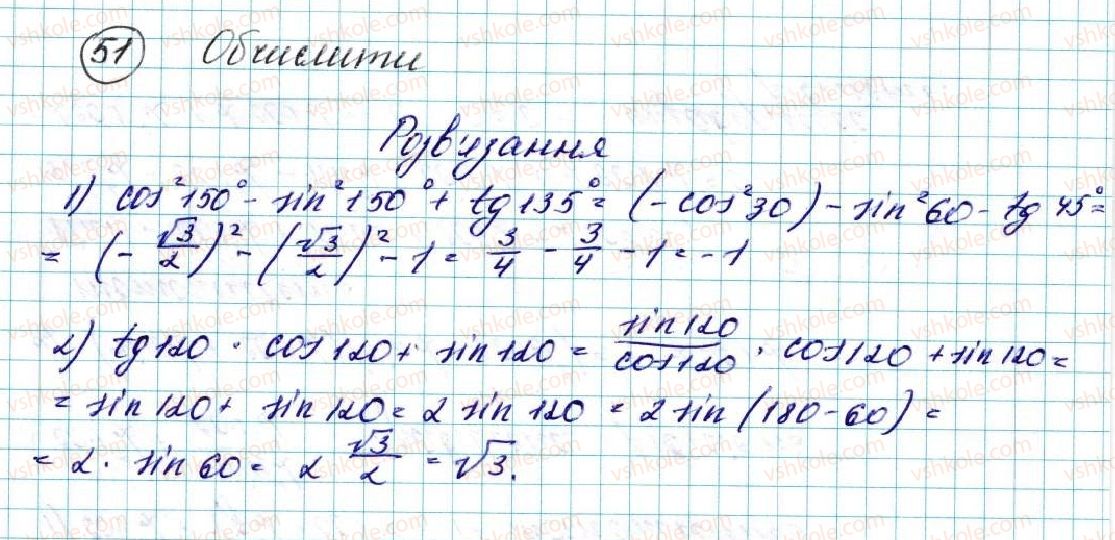 51 Обчислити
Розв'язання
1) cos²150° - sin²150° + tg 135° = (-cos²30) - sin²60 - tg 45° =
= (-√3/2)² - (√3/2)² - 1 = 3/4 - 3/4 - 1 = -1
2) tg 120 · cos 120 + sin 120 = sin 120/cos 120 · cos 120 + sin 120 =
= sin 120 + sin 120 = 2 sin 120 = 2 sin (180 - 60) =
= 2 · sin 60 = 2 √3/2 = √3.